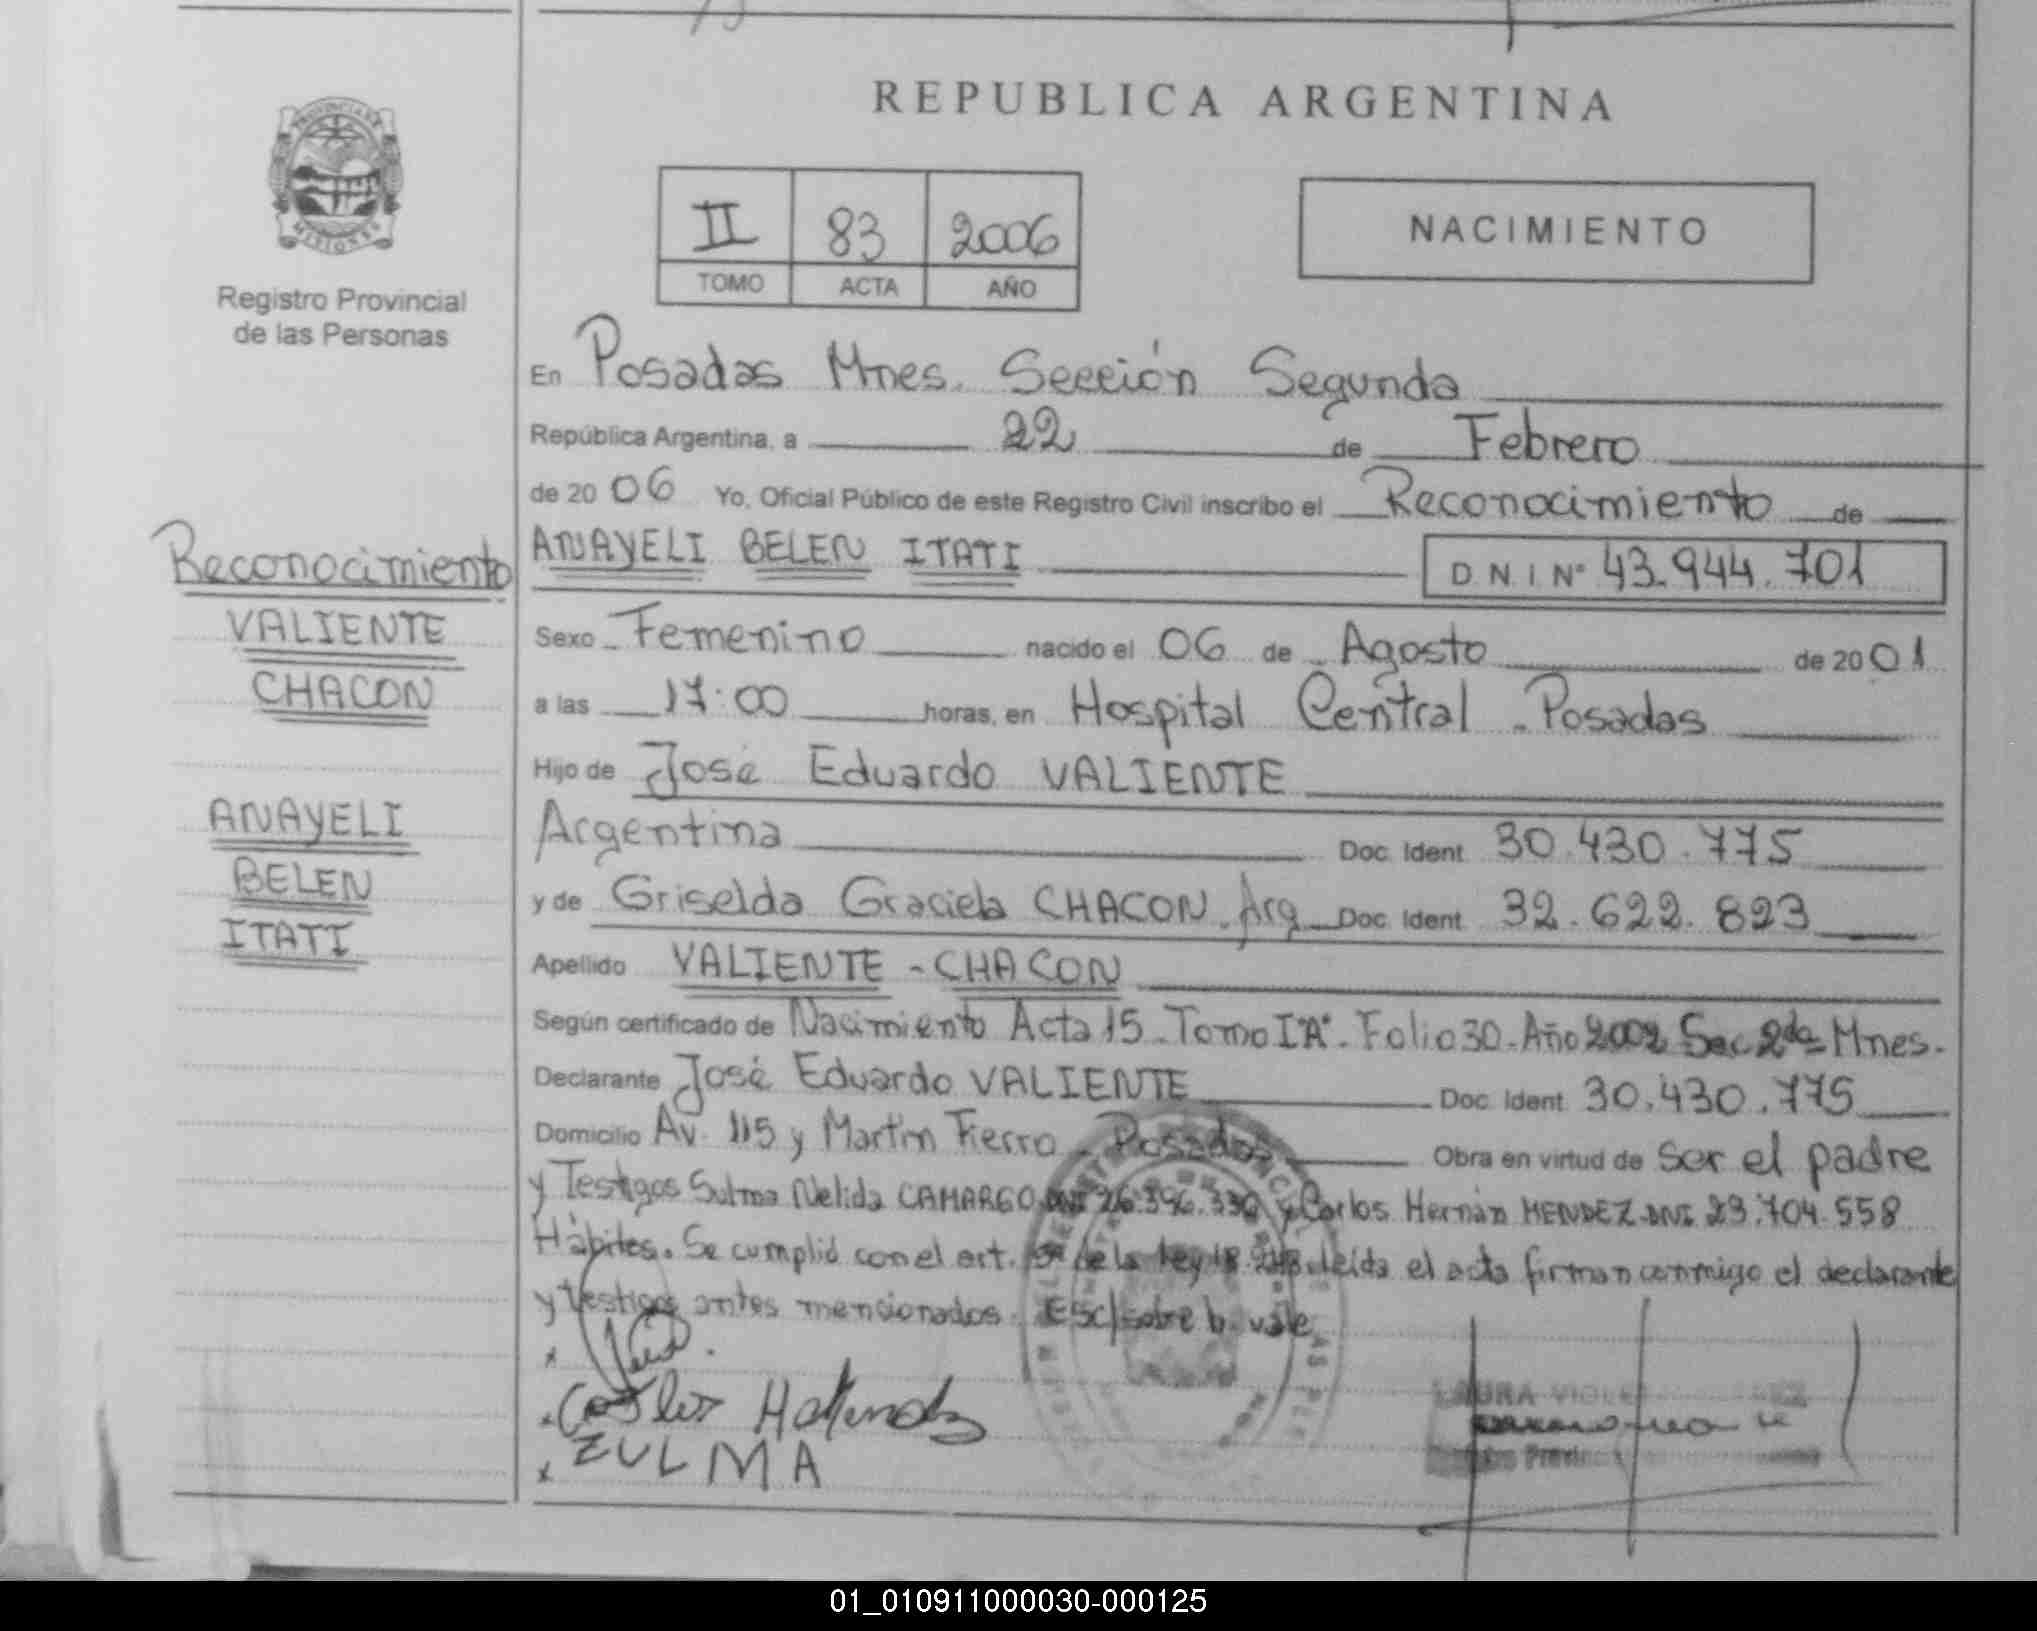 REPUBLICA ARGENTINA
PROVINCIA DE MISIONES
Registro Provincial
de las Personas
II 83 2006
TOMO ACTA AÑO
NACIMIENTO
En Posadas Mnes. Sección Segunda
República Argentina, a 22 de Febrero
de 2006 Yo, Oficial Público de este Registro Civil inscribo el Reconocimiento de
ANAYELI BELEN ITATI D N I Nº 43.944.701
Sexo Femenino nacido el 06 de Agosto de 2001
a las 17:00 horas, en Hospital Central - Posadas
Hijo de José Eduardo VALIENTE
Argentina Doc. Ident. 30.430.775
y de Griselda Graciela CHACON. Arg Doc. Ident. 32.622.823
Apellido VALIENTE - CHACON
Según certificado de Nacimiento Acta 15 - Tomo I"A" - Folio 30 - Año 2002 Sec 2da Mnes.
Declarante José Eduardo VALIENTE Doc. Ident. 30.430.775
Domicilio Av. 115 y Martin Fierro - Posadas Obra en virtud de ser el padre
y Testigos Sulma Nelida CAMARGO DNI 26.396.330 y Carlos Hernán MENDEZ DNI 23.704.558
Hábiles. Se cumplió con el art. 5º de la ley 18.248 leída el acta firman conmigo el declarante
y testigos antes mencionados. Esc/sobre b. vale
Reconocimiento
VALIENTE
CHACON
ANAYELI
BELEN
ITATI
x
x Carlos H Mendez
x ZULMA
LAURA
01_010911000030-000125